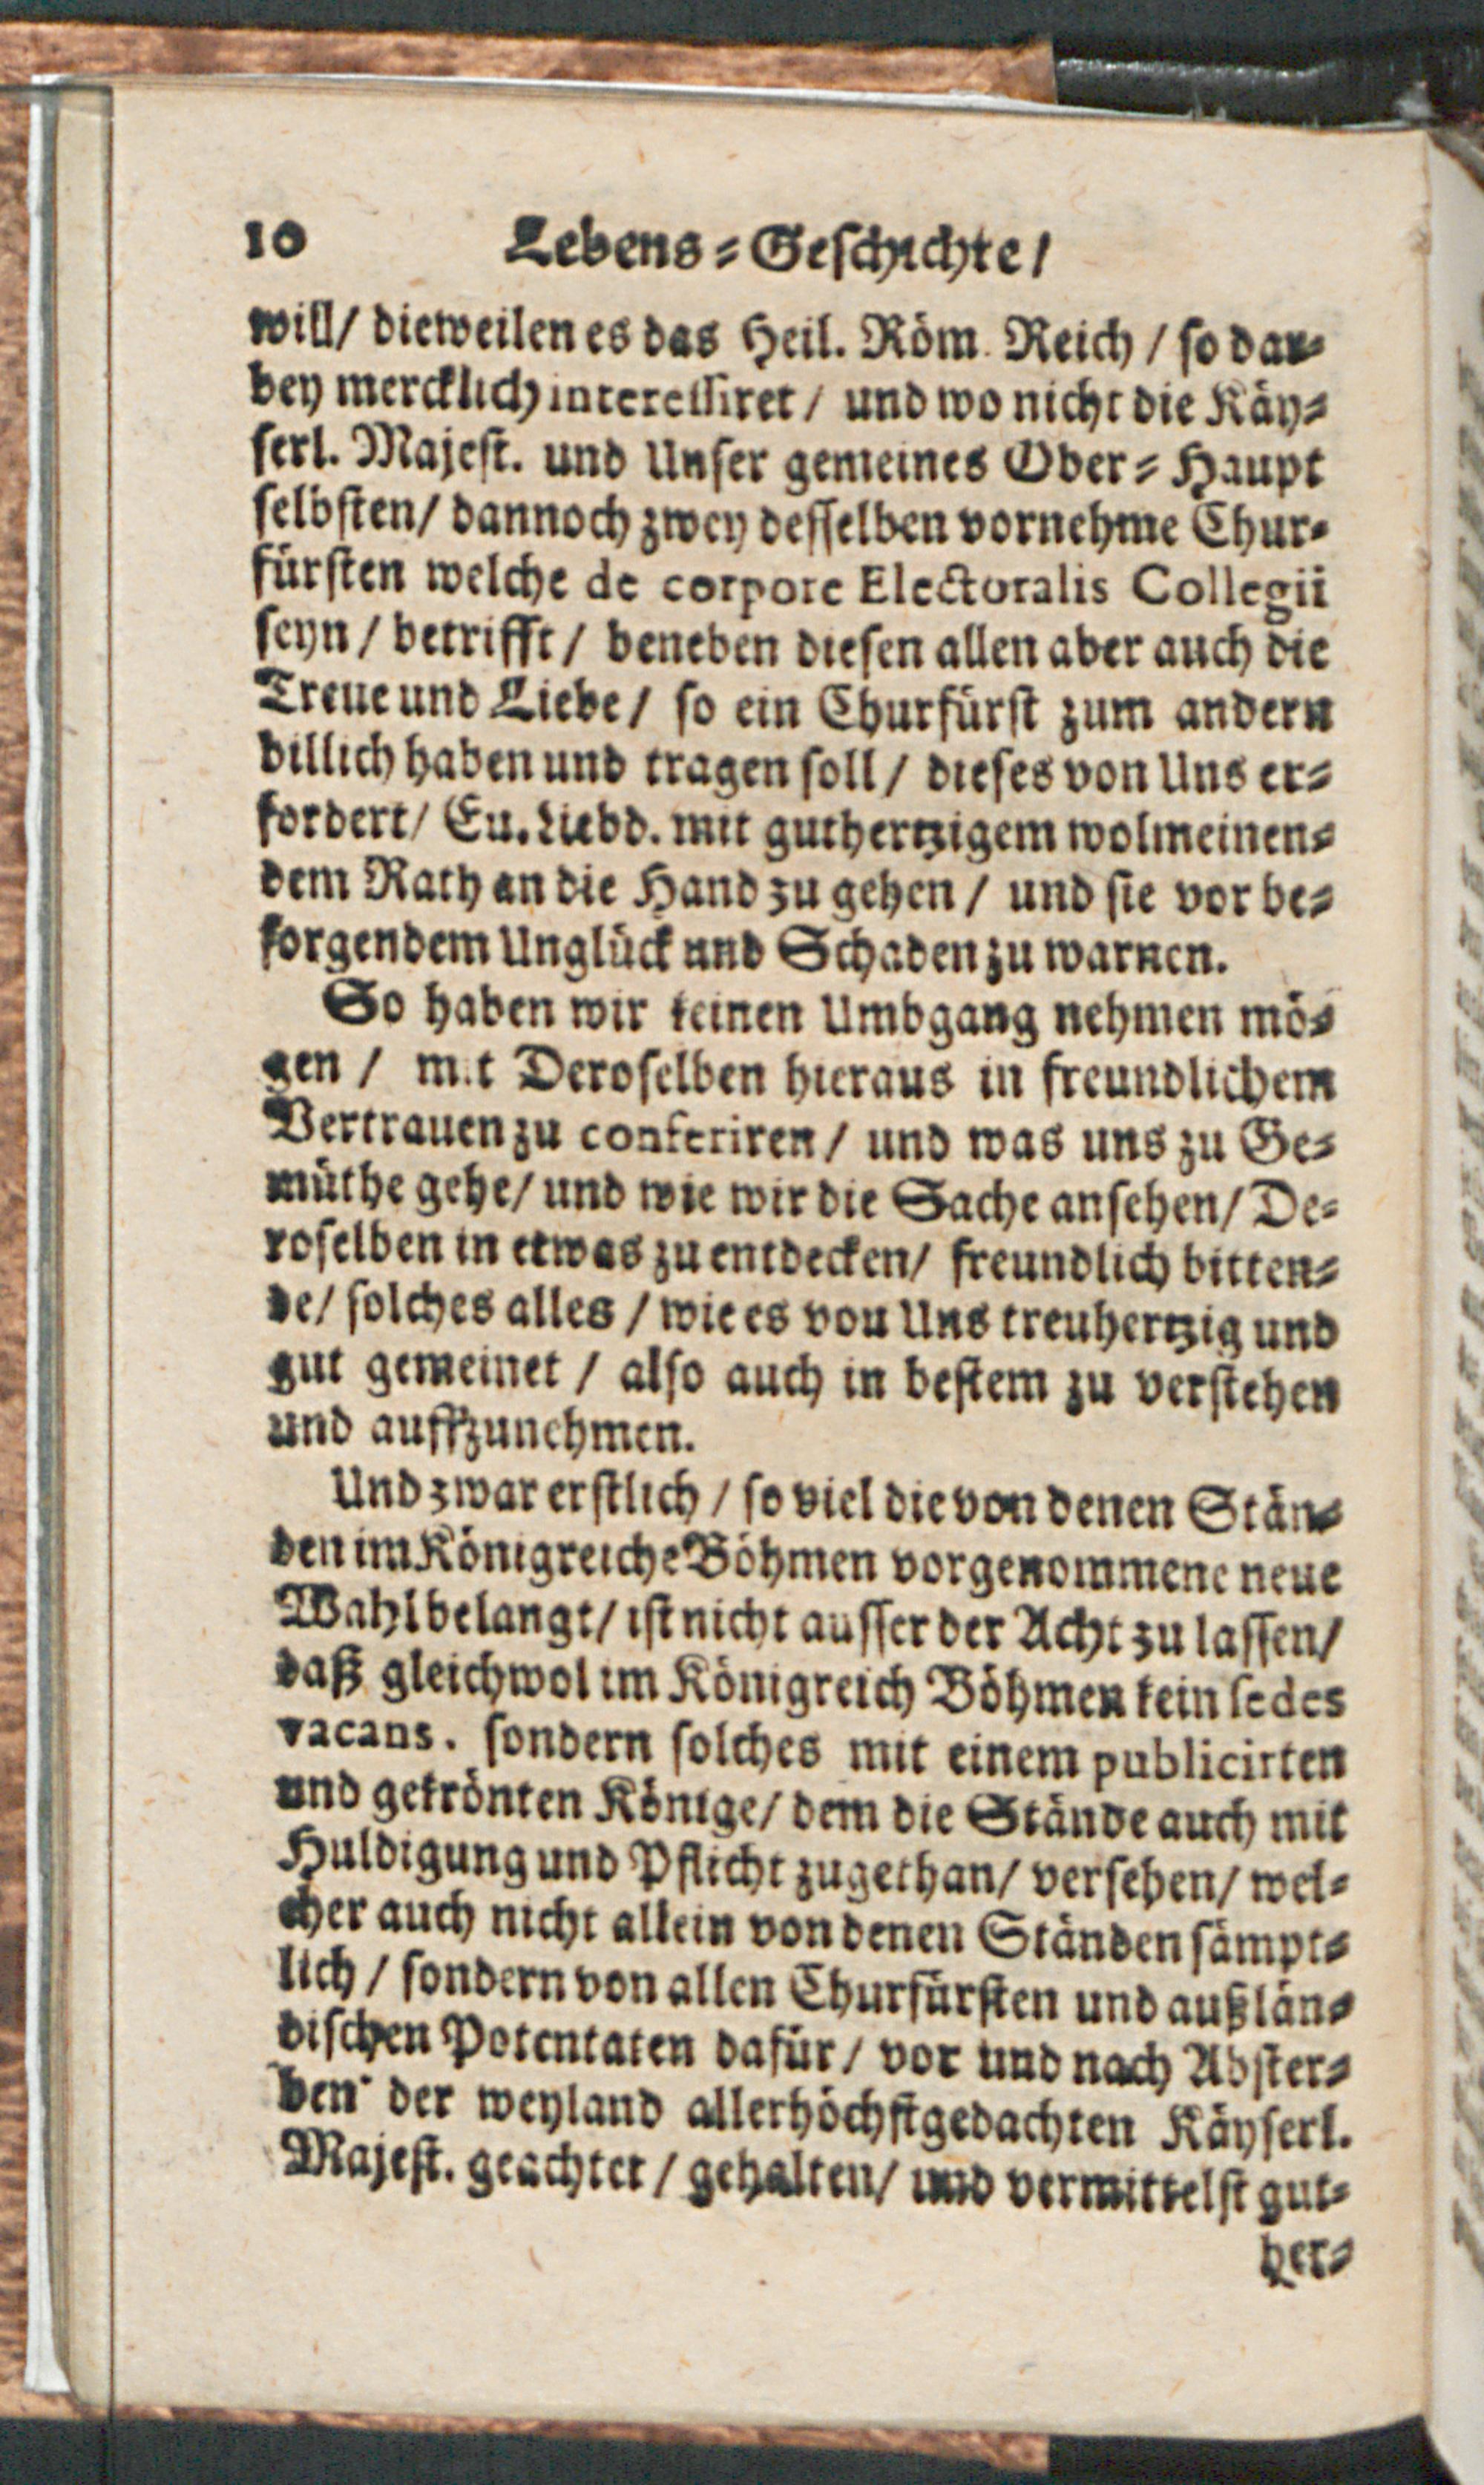 10 Lebens-Geschichte/
will/ dieweilen es das Heil. Röm. Reich / so dar-
bey mercklich interessiret / und wo nicht die Käy-
serl. Majest. und Unser gemeines Ober-Haupt
selbsten/ dannoch zwey desselben vornehme Chur-
fürsten welche de corpore Electoralis Collegii
seyn / betrifft / beneben diesen allen aber auch die
Treue und Liebe / so ein Churfürst zum andern
billich haben und tragen soll / dieses von Uns er-
fordert/ Eu. Liebd. mit guthertzigem wolmeinen-
dem Rath an die Hand zu gehen / und sie vor be-
sorgendem Unglück und Schaden zu warnen.
So haben wir keinen Umbgang nehmen mö-
gen / mit Deroselben hieraus in freundlichem
Vertrauen zu conferiren / und was uns zu Ge-
müthe gehe/ und wie wir die Sache ansehen/ De-
roselben in etwas zu entdecken/ freundlich bitten-
de/ solches alles / wie es von Uns treuhertzig und
gut gemeinet / also auch in bestem zu verstehen
und auffzunehmen.
Und zwar erstlich / so viel die von denen Stän-
den im Königreiche Böhmen vorgenommene neue
Wahl belangt/ ist nicht ausser der Acht zu lassen/
daß gleichwol im Königreich Böhmen kein sedes
vacans. sondern solches mit einem publicirten
und gekrönten Könige/ dem die Stände auch mit
Huldigung und Pflicht zugethan/ versehen/ wel-
cher auch nicht allein von denen Ständen sämpt-
lich / sondern von allen Churfürsten und außlän-
dischen Potentaten dafür / vor und nach Abster-
ben der weyland allerhöchstgedachten Käyserl.
Majest. geachtet / gehalten/ und vermittelst gut-
her-